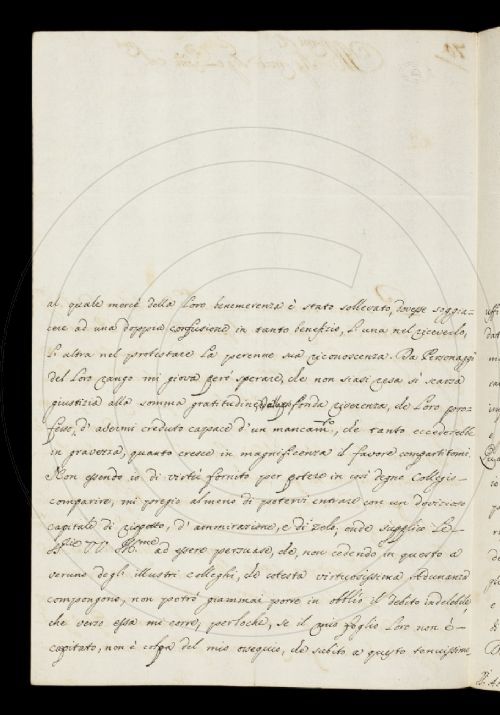 al quale mercè della Loro benemerenza è stato sollevato, dovesse soggia-
cere ad una doppia confusione in tanto benefizio, L'una nel riceverlo,
L'altra nel protestare La perenne sua riconoscenza. Da Personaggi
del Loro rango mi giova però sperare, che non siasi resa sì scarsa
giustizia alla somma gratitudine, profonda riverenza, che Loro pro-
fesso, d'avermi creduto capace d'un mancamto, che tanto eccederebbe
in gravezza, quanto cresce in magnificenza il favore compartitomi.
Non essendo io di virtù fornito per potere in così degno Collegio
comparire, mi pregio almeno di potervi entrare con un dovizioso
capitale di rispetto, d'ammirazione, e di zelo, onde supplico Le
ad essere persuase, che, non cedendo in questo a
veruno degli illustri colleghi, che cotesta virtuosissima Adunanza
compongono, non potrò giammai porre in obblio il debito indelebile,
che verso essa mi corre, perloche, se il mio foglio Loro non è
capitato, non è colpa del mio ossequio, che subito a questo tenuissimo